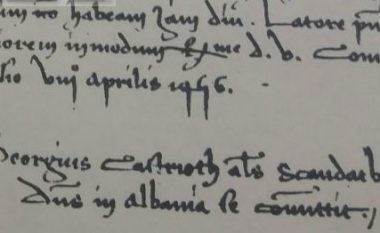 no habeam iam diu. Latore
in modum me d. v. Com
lio viij aprilis 1456.
Georgius Castrioth als Scandarb
Dns in albania se comittit.